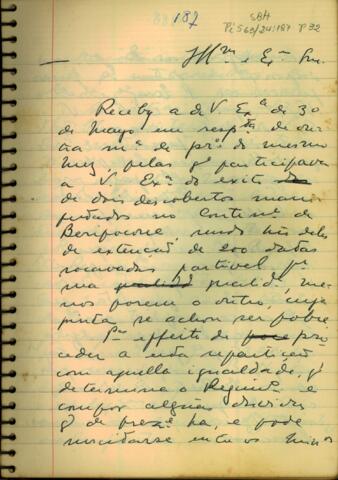 187
SBH
Pi 563/24:187 P 32
Illmº e Exº Snr.
Receby a de V. Exª de 30
de Mayo em respta de ou
tra mª de prº do mesmo
mez, pelas qº participava
a V. Exª do exito
de dois descobertos mani
festados no Contenº de
, sendo hũs delles
de extenção de 200 datas
partivel pº
ma partida, me
nos porem o outro, cuja
pinta se achou ser pobre
Pº effeito de pro
ceder a esta repartição
com aquella igualdade, qº
determina o Regimº e
compor algũas duvidas
qº de prezº ha, e pode
suscitarse entre os